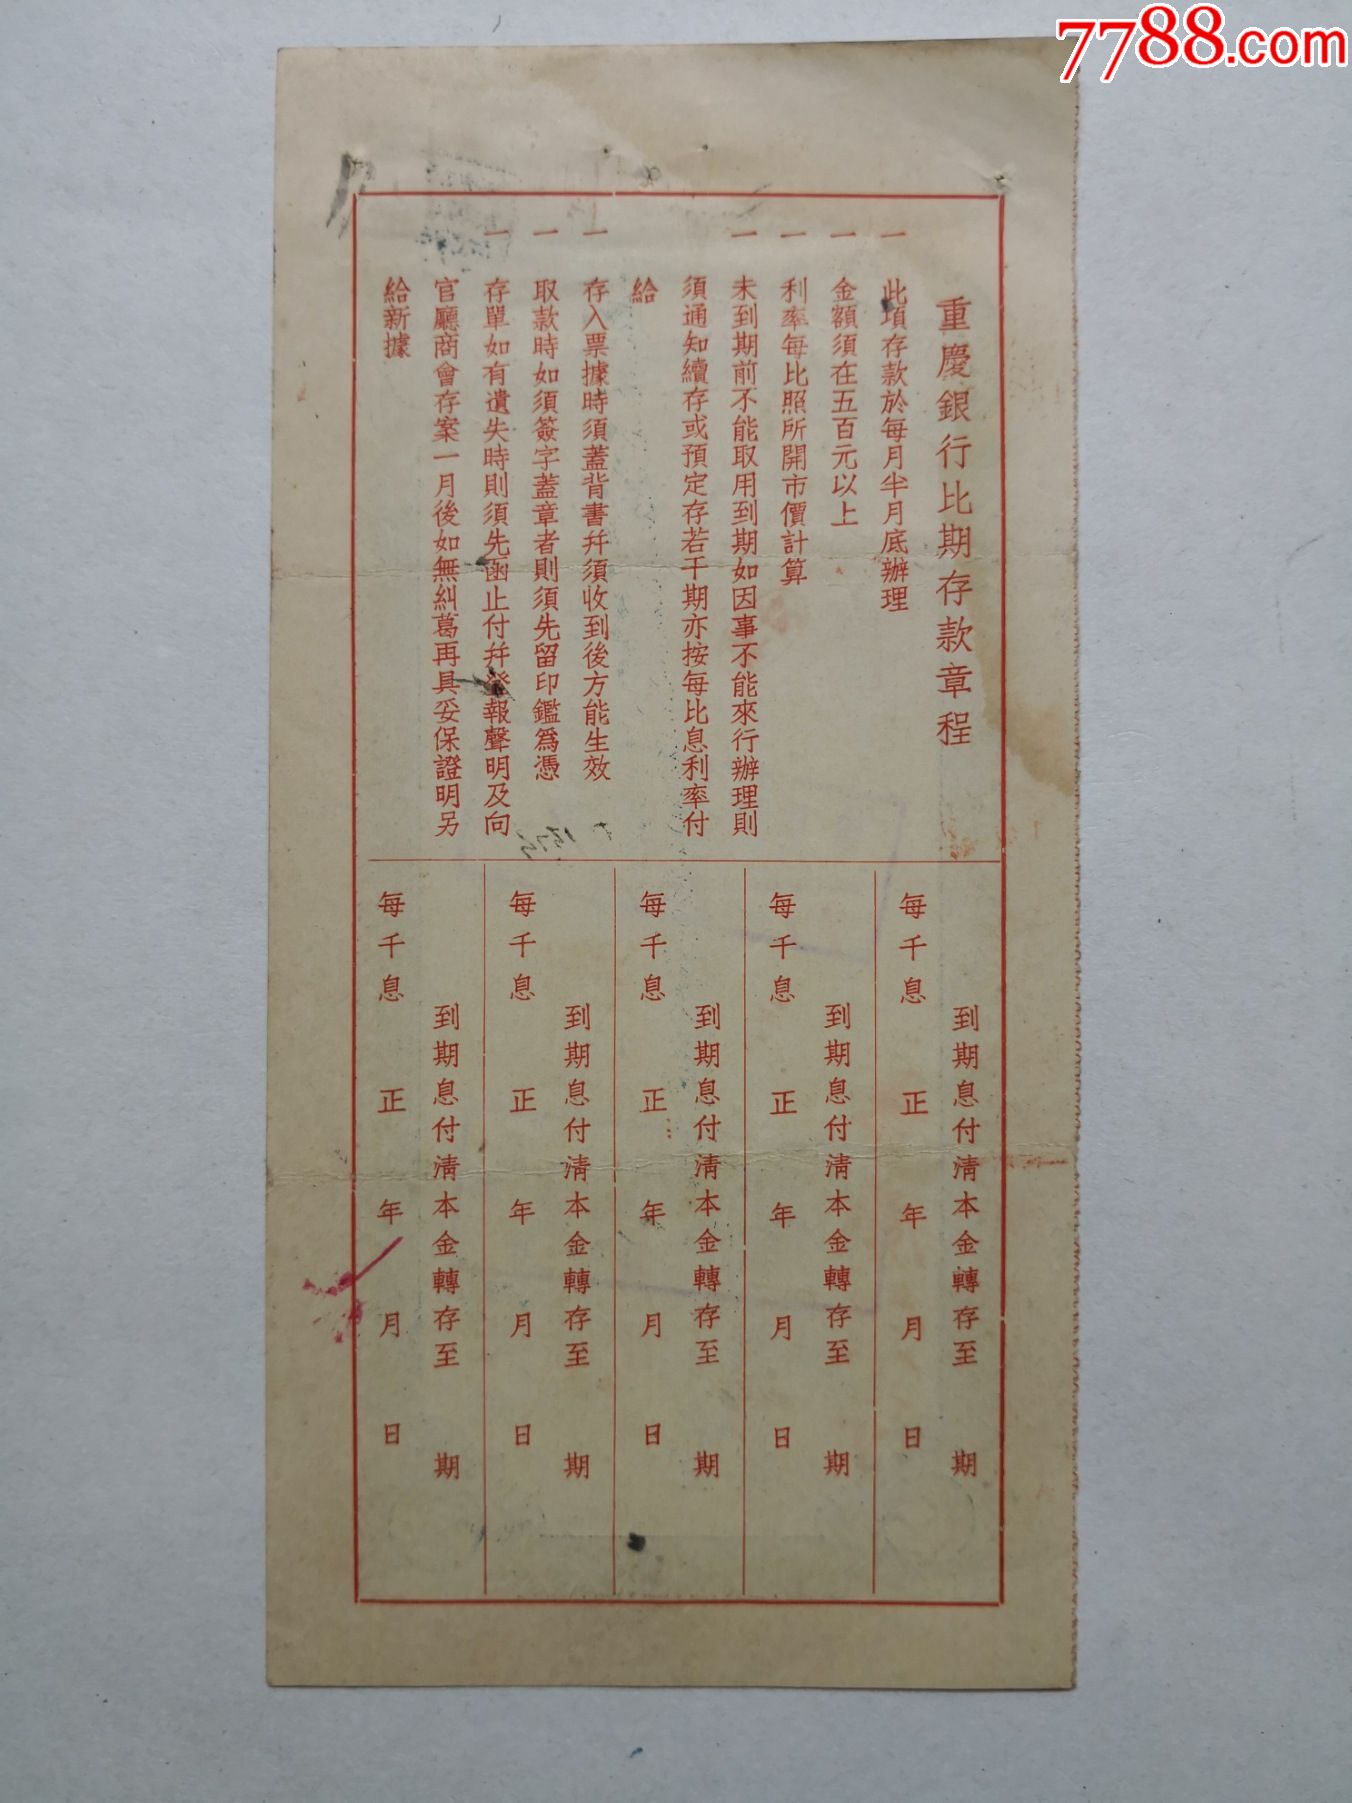 7788.com
重慶銀行比期存款章程
一 此項存款於每月半月底辦理
一 金額須在五百元以上
一 利率每比照所開市價計算
一 未到期前不能取用到期如因事不能來行辦理則
須通知續存或預定存若干期亦按每比息利率付
給
一 存入票據時須蓋背書幷須收到後方能生效
一 取款時如須簽字蓋章者則須先留印鑑爲憑
一 存單如有遺失時則須先函止付幷登報聲明及向
官廳商會存案一月後如無糾葛再具妥保證明另
給新據
到期息付淸本金轉存至 期
每千息 正 年 月 日
到期息付淸本金轉存至 期
每千息 正 年 月 日
到期息付淸本金轉存至 期
每千息 正 年 月 日
到期息付淸本金轉存至 期
每千息 正 年 月 日
到期息付淸本金轉存至 期
每千息 正 年 月 日